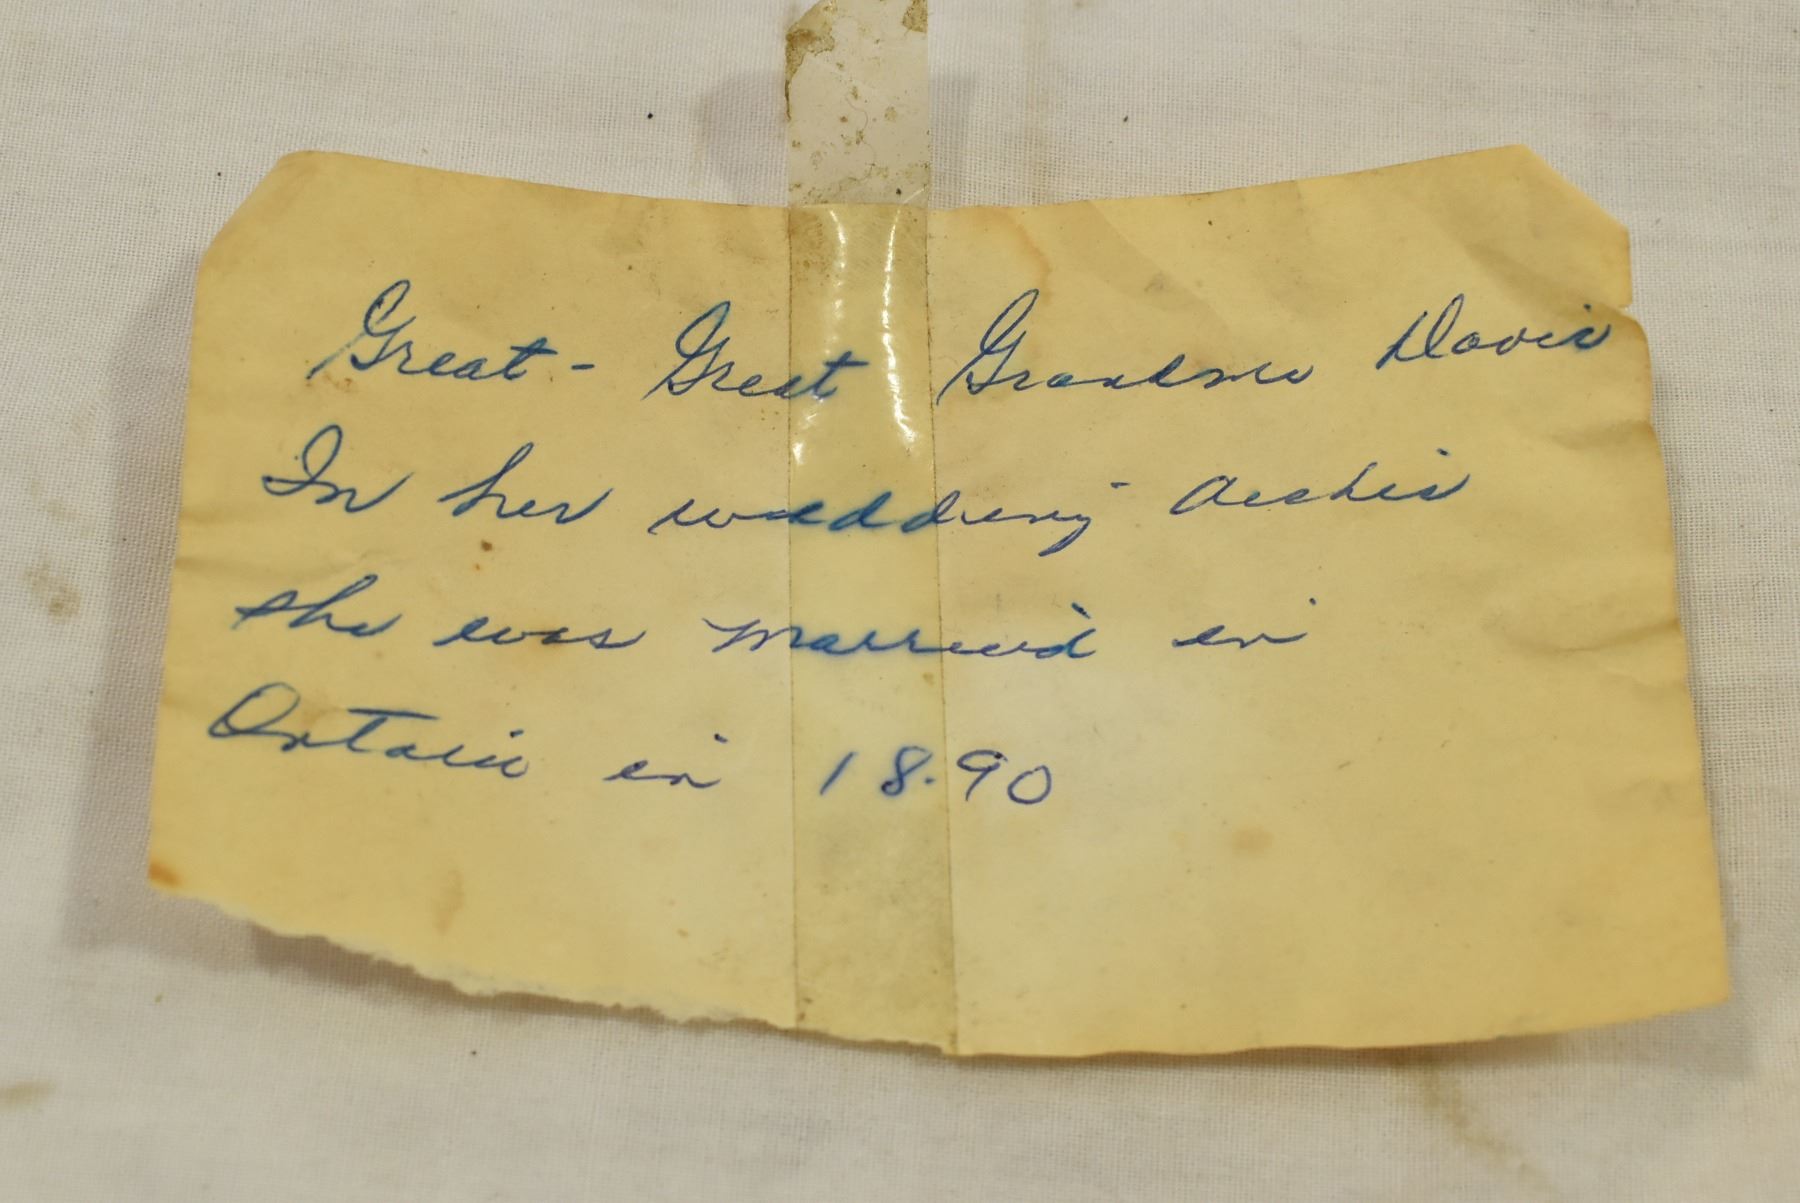 Great - Great Grandma Davis
In her wedding
she was married in
Ontario in 18.90